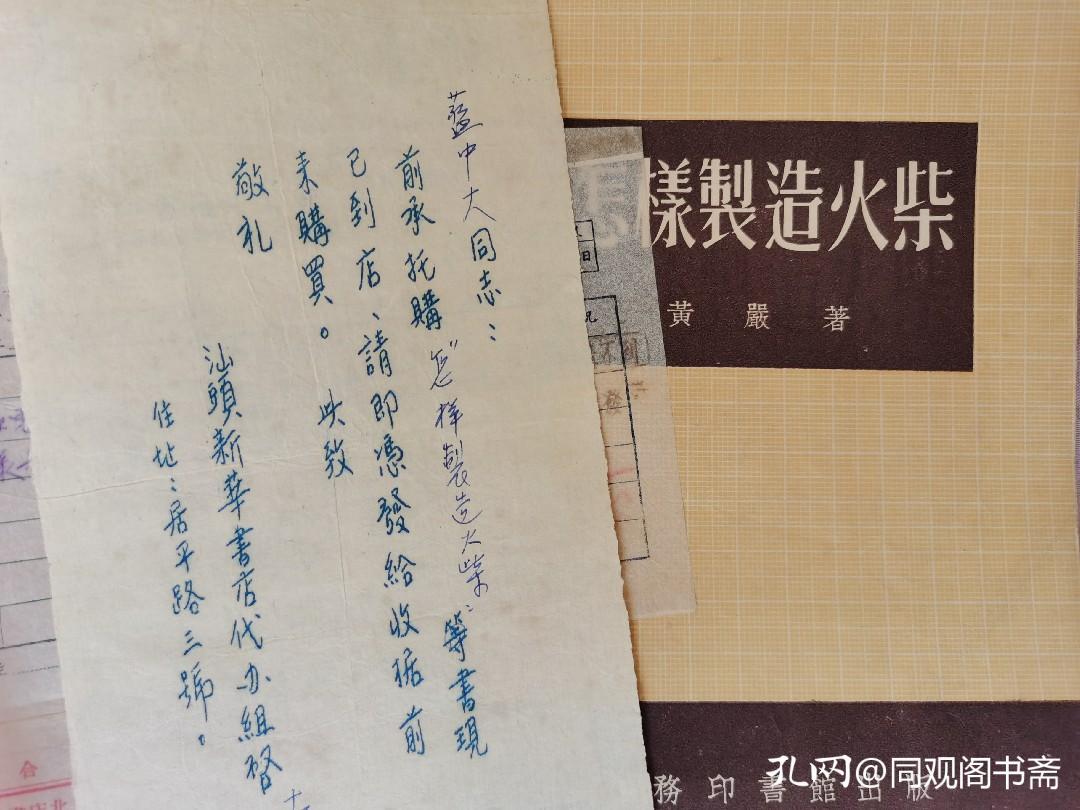 蓝中大同志：
前承托購“怎样製造火柴”等書現
已到店、請即憑發給收据前
来購買。 此致
敬礼
汕頭新華書店代办組啓
住址：居平路三號。
十
怎樣製造火柴
黃嚴著
務印書館出版
日
合
孔网@同观阁书斋